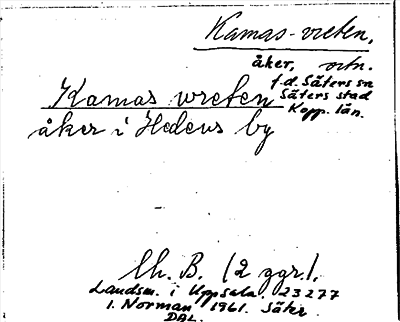 Kamas-vreten,
åker, ortn.
f.d. Säters sn
Säters stad
Kopp. län.
Kamas vreten
åker i Hedens by
Uh. B. (2 ggr).
Landsm. i Uppsala. 23277
I. Norman 1961. Säter
DAL.